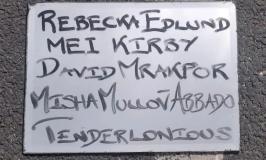 REBECKA EDLUND
MEI KIRBY
DAVID MRAKPOR
MISHA MULLOV ABBADO
TENDERLONIOUS